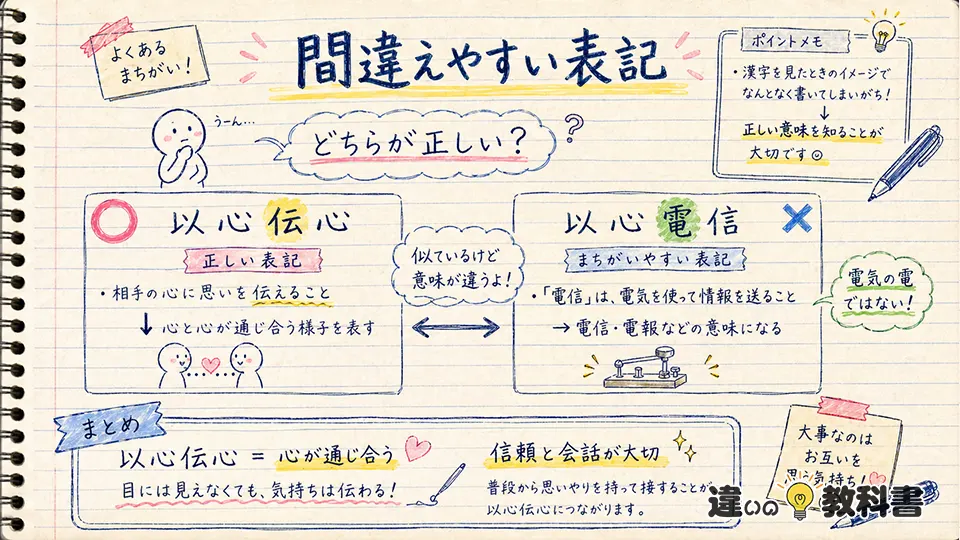 よくある
まちがい！
間違えやすい表記
ポイントメモ
・漢字を見たときのイメージで
なんとなく書いてしまいがち！
↓
正しい意味を知ることが
大切です☺
うーん…
どちらが正しい？
?
以心伝心
正しい表記
・相手の心に思いを伝えること
↓ 心と心が通じ合う様子を表す
似ているけど
意味が違うよ！
以心電信
まちがいやすい表記
・「電信」は、電気を使って情報を送ること
→ 電信・電報などの意味になる
電気の電
ではない！
まとめ
以心伝心 = 心が通じ合う
目には見えなくても、気持ちは伝わる！
信頼と会話が大切
普段から思いやりを持って接することが
以心伝心につながります。
大事なのは
お互いを
気持ち！
違いの教科書